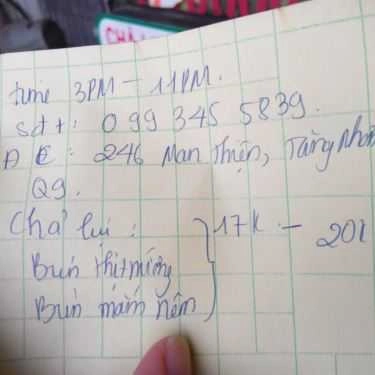 CHẢ
time 3PM - 11PM.
sđt: 099 345 5839.
ĐC: 246 Man Thiện, Tăng Nhơn
Q9.
Chả lụi :
Bún thịt nướng
Bún mắm nêm
17k - 20k